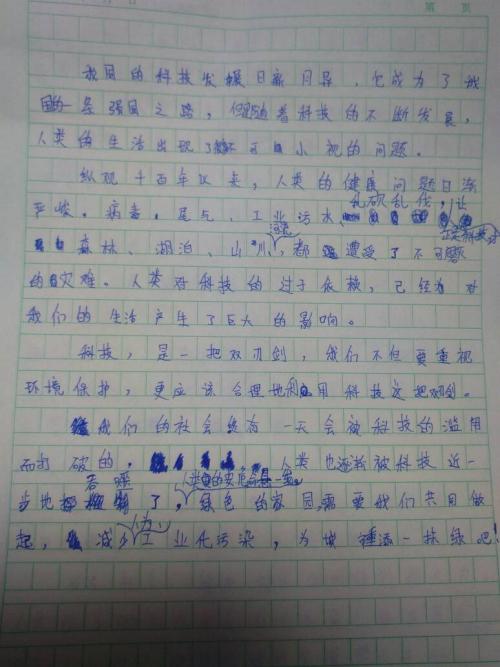 第 页
我国的科技发展日新月异，它成为了我
国的一条强国之路，但随着科技的不断发展，
人类的生活出现了不可小视的问题。
纵观千百年以来，人类的健康问题日渐
乱砍乱伐，让
严峻。病毒，尾气，工业污水，
河流
森林、湖泊、山川，都遭受了不可
的灾难。人类对科技的过于依赖，已经为对
我们的生活产生了巨大的影响。
科技，是一把双刃剑，我们不但要重视
环境保护，更应该合理地利用科技这把双剑。
我们的社会终有一天会被科技的滥用
而打破的，人类也逐渐被科技近一
人类的安危
步地了，绿色的家园需要我们共同做
人为、
起，减少工业化污染，为城增添一抹绿吧！